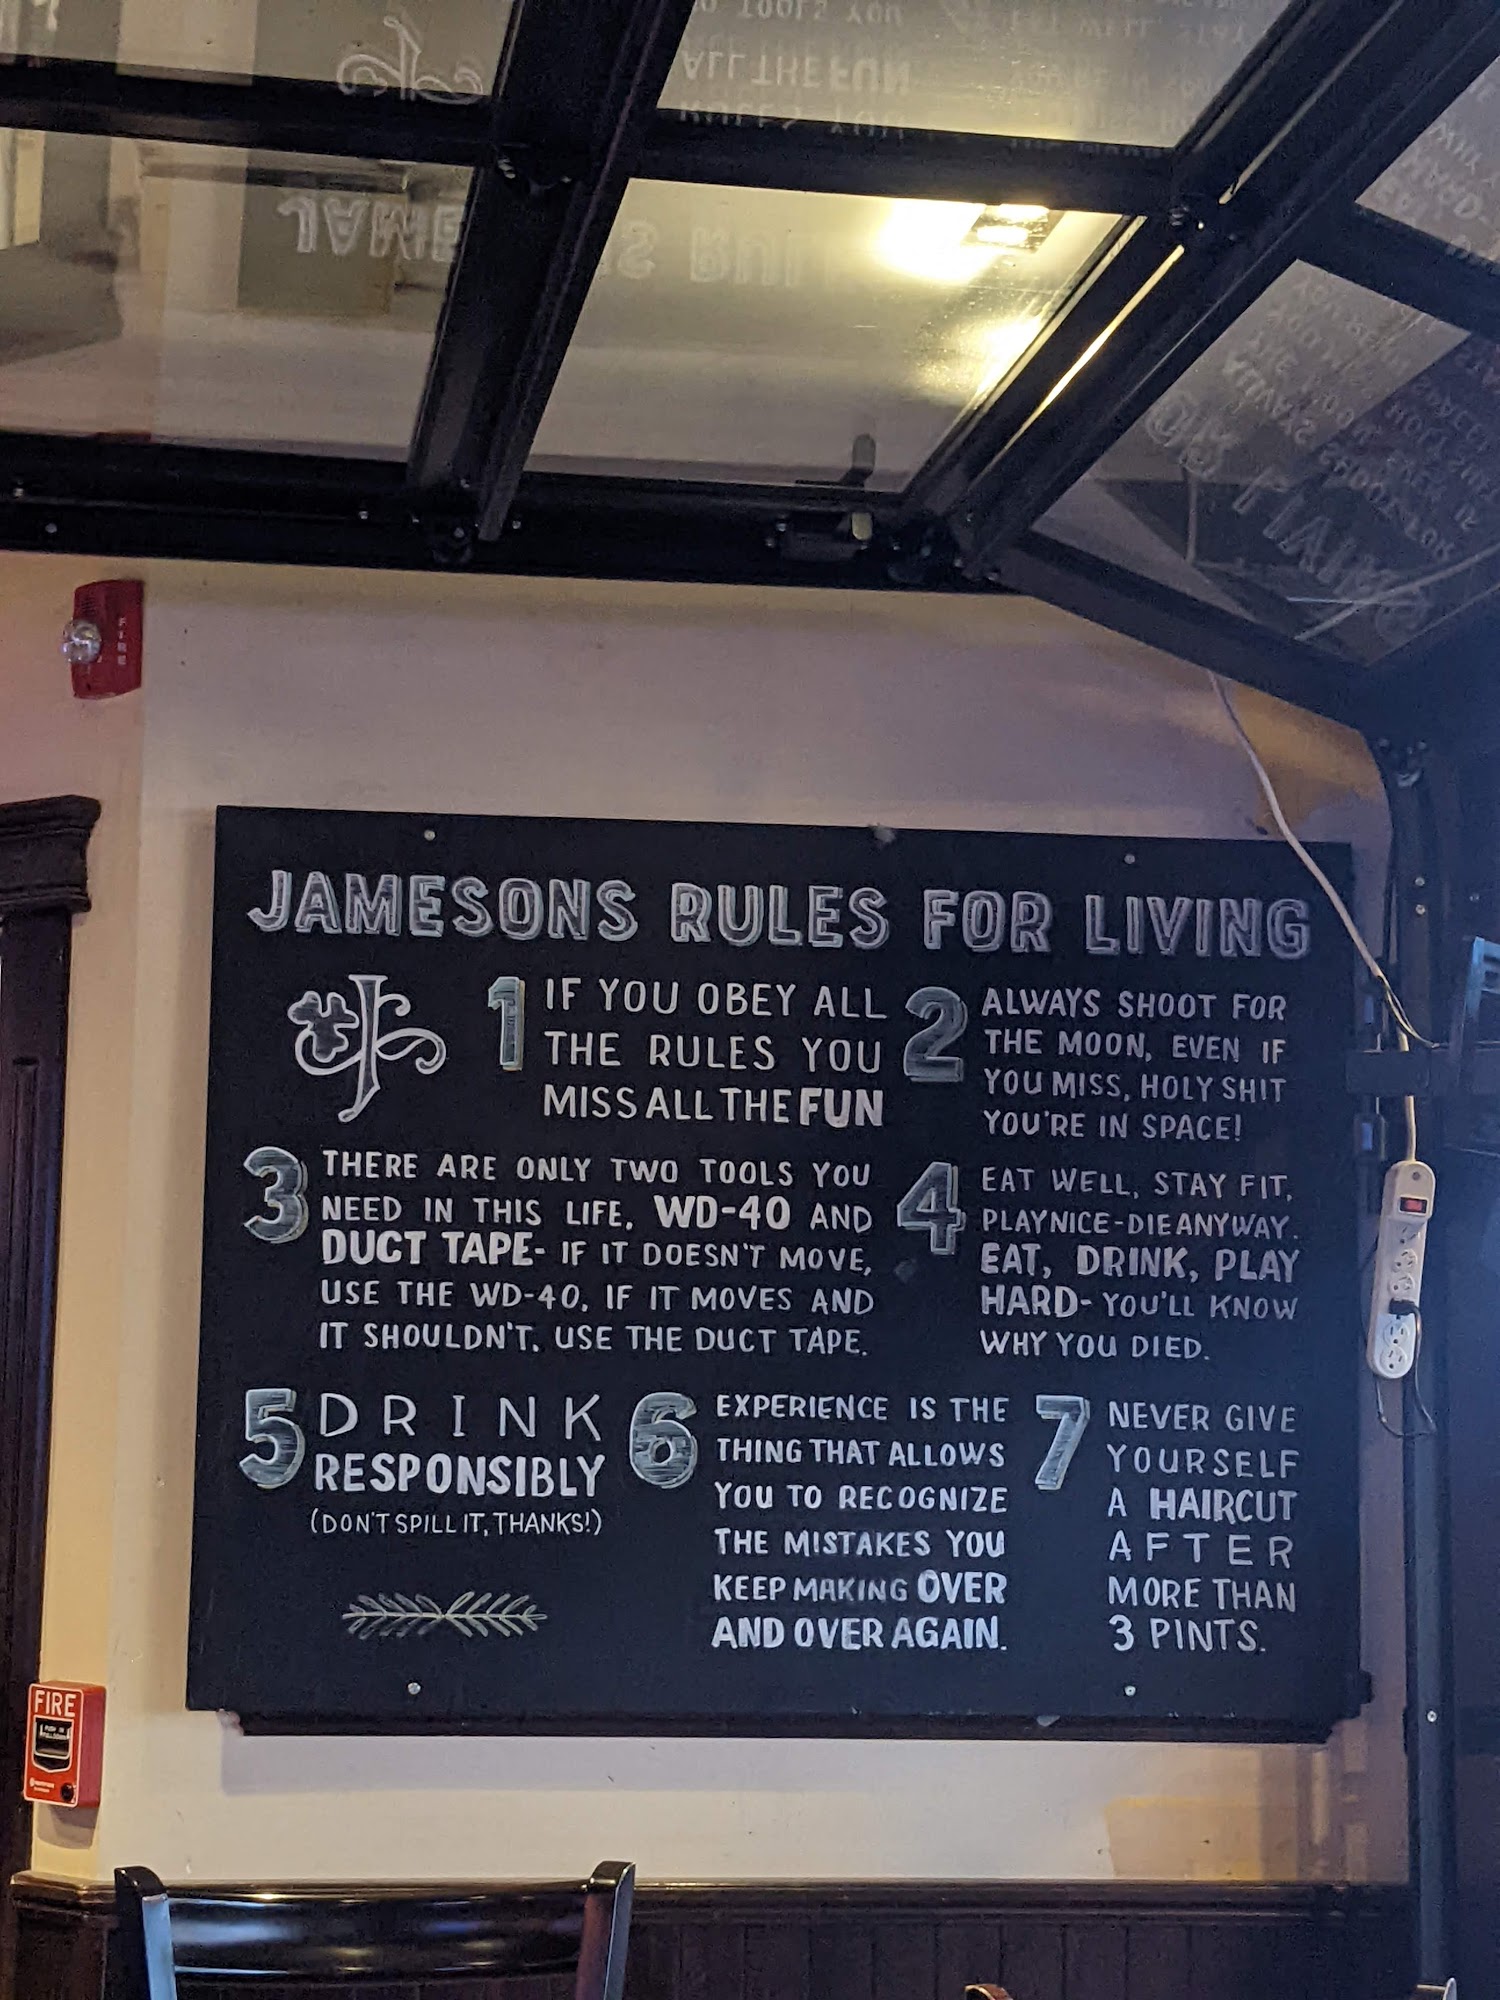 JAMESONS RULES FOR LIVING
1 IF YOU OBEY ALL
THE RULES YOU
MISS ALL THE FUN
2 ALWAYS SHOOT FOR
THE MOON, EVEN IF
YOU MISS, HOLY SHIT
YOU'RE IN SPACE!
3 THERE ARE ONLY TWO TOOLS YOU
NEED IN THIS LIFE. WD-40 AND
DUCT TAPE- IF IT DOESN'T MOVE,
USE THE WD-40. IF IT MOVES AND
IT SHOULDN'T. USE THE DUCT TAPE.
4 EAT WELL, STAY FIT,
PLAY NICE-DIE ANYWAY.
EAT, DRINK, PLAY
HARD- YOU'LL KNOW
WHY YOU DIED.
5 DRINK
RESPONSIBLY
(DON'T SPILL IT, THANKS!)
6 EXPERIENCE IS THE
THING THAT ALLOWS
YOU TO RECOGNIZE
THE MISTAKES YOU
KEEP MAKING OVER
AND OVER AGAIN.
7 NEVER GIVE
YOURSELF
A HAIRCUT
AFTER
MORE THAN
3 PINTS.
FIRE
FIRE